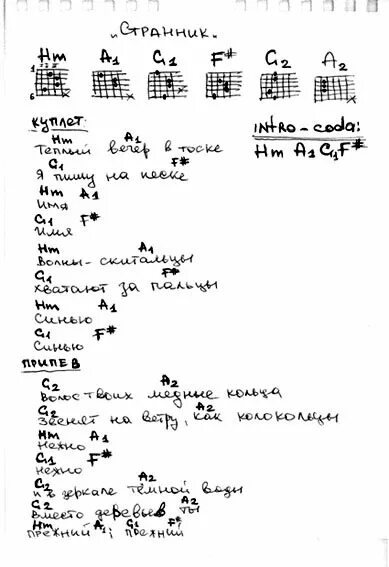 „Странник.
Hm A1 G1 F# G2 A2
1
6
Куплет: intro-coda:
Hm A1 Hm A1 G1 F#
Теплый вечер в тоске
G1 F#
Я пишу на песке
Hm A1
Имя
G1 F#
Имя
Hm A1
Волны-скитальцы
G1 F#
хватают за пальцы
Hm A1
Синью
G1 F#
Синью
Припев
G2 A2
Волос твоих медные кольца
G2 A2
Звенят на ветру, как колокольцы
Hm A1
Нежно
G1 F#
Нежно
G2 A2
и в зеркале тёмной воды
G2 A2
Вместо деревьев ты
Hm A1 G1 F#
Прежний, прежний